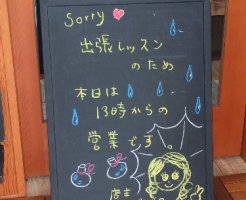 sorry
出張レッスン
のため
本日は
13時からの
営業です。